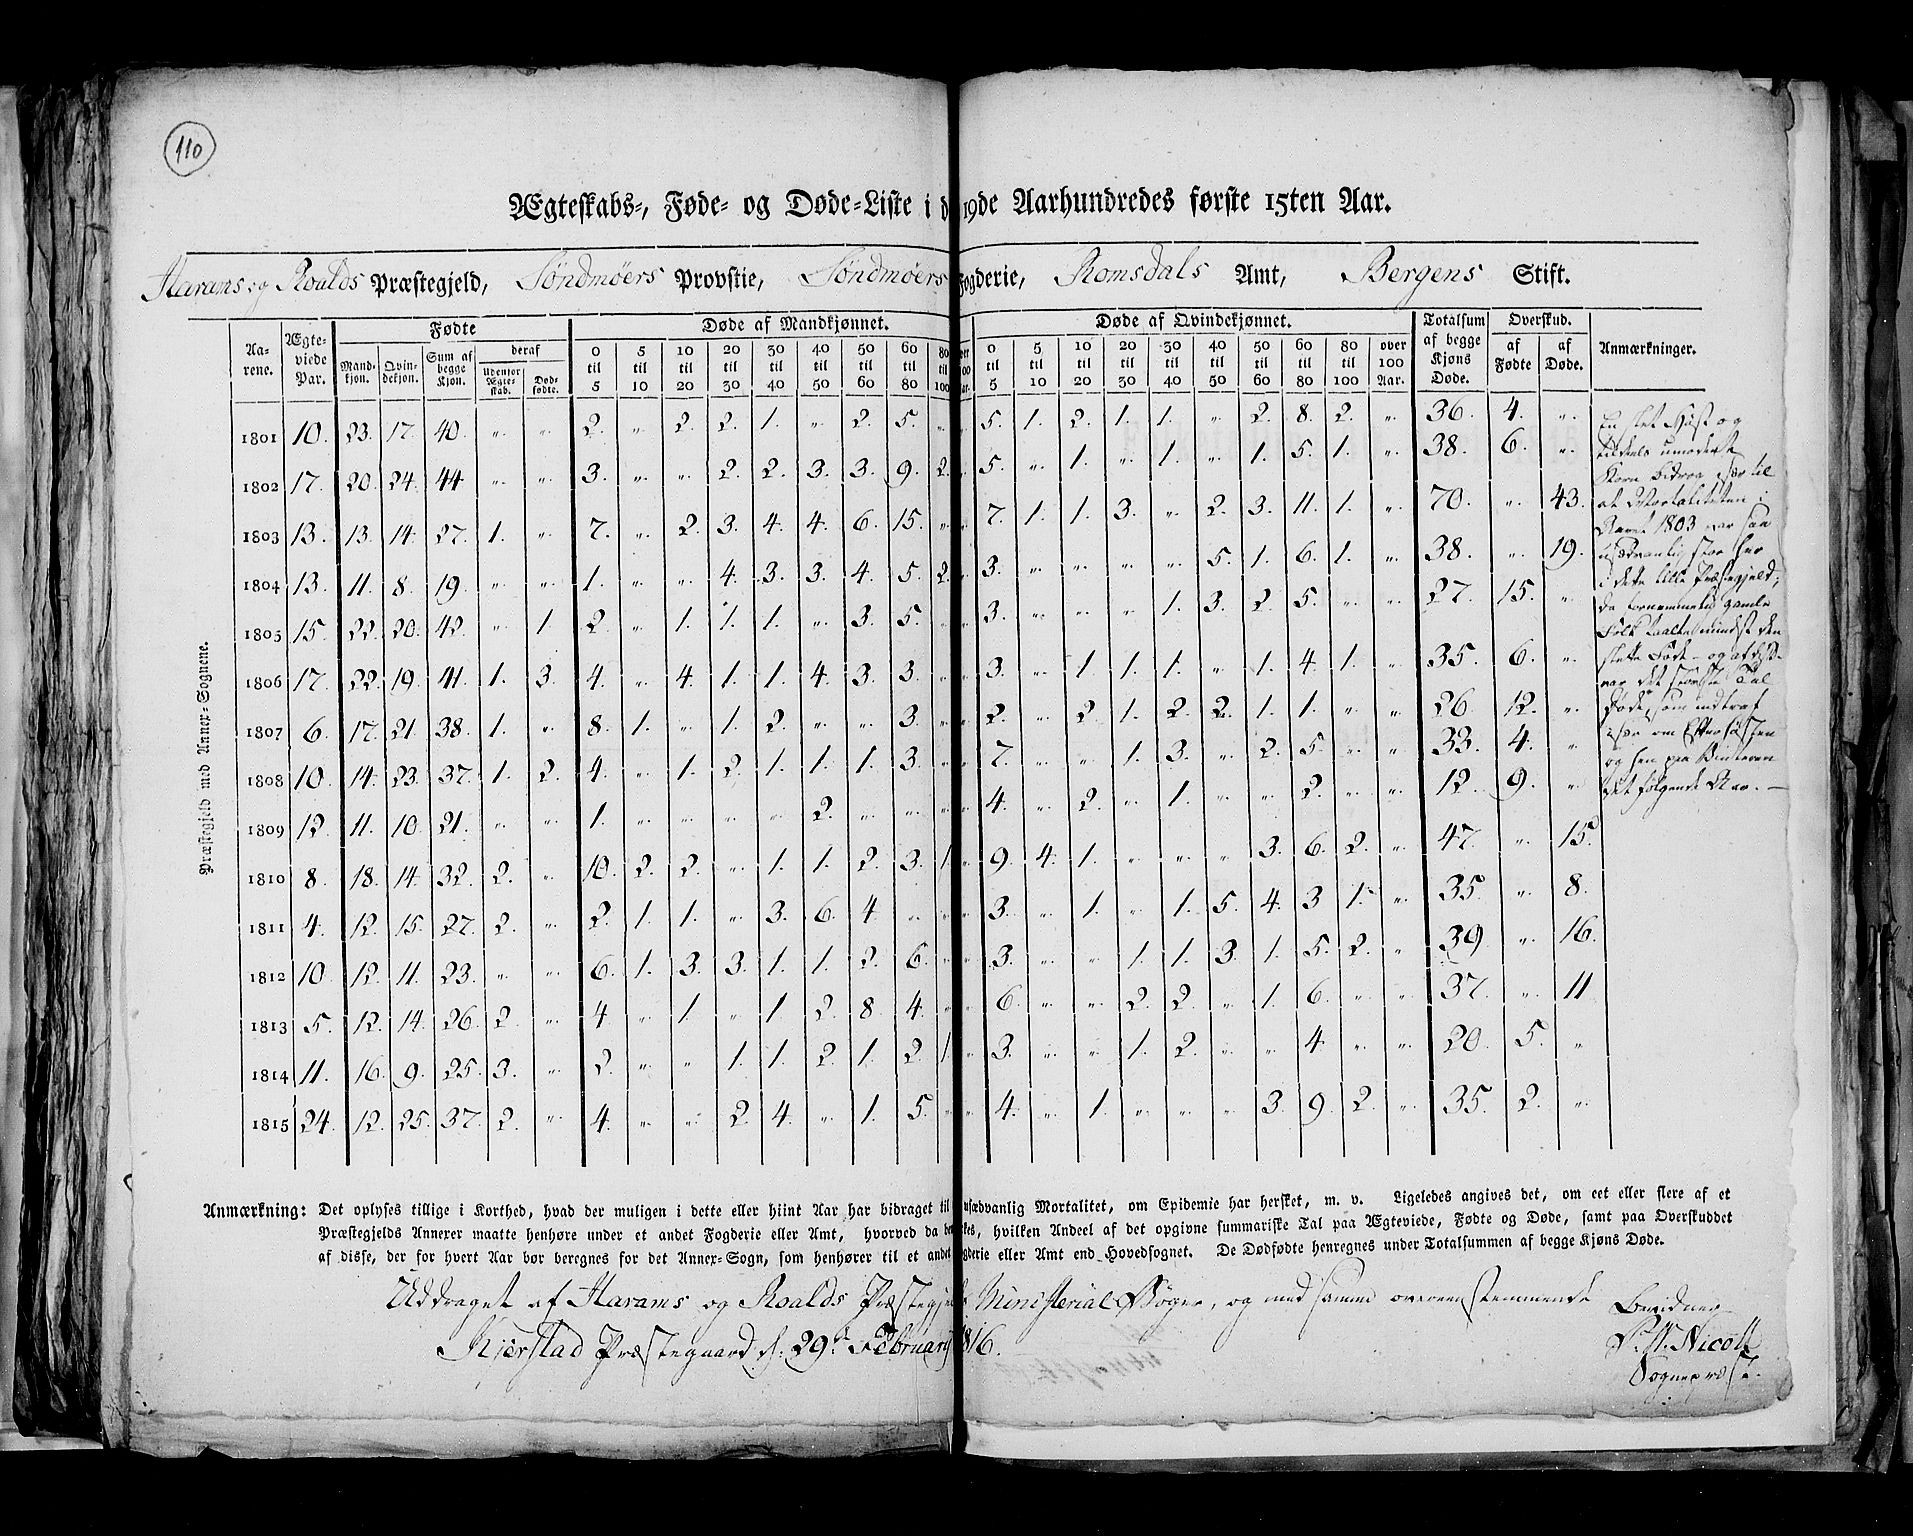 110
Ægteskabs-, Føde- og Døde-Liste i d 19de Aarhundredes første 15ten Aar.
Harams og Roalds Præstegjeld, Søndmøers Provstie, Søndmøers Fogderie, Romsdals Amt, Bergens Stift.
Præstegjeld med Annex-Sognene.
Aa-rene. Ægte-viede Par. Fødte Døde af Mandkjønnet. Døde af Qvindekjønnet. Totalsum af begge Kjøns Døde. Overskud. Anmærkninger.
Mand-kjøn. Qvin-dekjøn. Sum af begge Kjøn. deraf Udenfor Ægte-skab. Død-fødte. 0 til 5 5 til 10 10 til 20 20 til 30 30 til 40 40 til 50 50 til 60 60 til 80 80 til 100 0 til 5 5 til 10 10 til 20 20 til 30 30 til 40 40 til 50 50 til 60 60 til 80 80 til 100 over 100 Aar. af Fødte af Døde.
1801 10. 23. 17. 40. " " 2. " 2. 2. 1. " 2. 5. " " 5. 1. 2. 1. 1. " 2. 8. 2. " 36. 4. "
1802 17. 20. 24. 44 " " 3. " " 2. 2. 3. 3. 9. 2. " 5. " 1. " 1. " 1. 5. 1. " 38. 6. "
1803 13. 13. 14. 27. 1. " 7. " 2. 3. 4. 4. 6. 15. " " 7. 1. 1. 3. " 2. 3. 11. 1. " 70. " 43.
1804 13. 11. 8. 19. " " 1. " " 4. 3. 3. 4. 5. 2. " 3. " " " " 5. 1. 6. 1. " 38. " 19.
1805 15. 22. 20. 42. " 1 2. " 1. 1. 1. " 3. 5. " " 3. " " " 1. 3. 2. 5. " " 27. 15. "
1806 17. 22. 19. 41. 1. 3. 4. " 4. 1. 1. 4. 3. 3. " " 3. " 1. 1. 1. " 1. 4. 1. " 35. 6. "
1807 6. 17. 21. 38. 1. " 8. 1. " 1. 2. " " 3. " " 2. " 2. 1. 2. 2. 1. 1. " " 26. 12. "
1808 10. 14. 23. 37. 1. 2. 4. " 1. 2. 1. 1. 1. 3. " " 7. " " 1. 3. " 2. 5. " " 33. 4. "
1809 12. 11. 10. 21. " " 1. " " " " 2. " " " " 4. " 2. " 1. " " 2. " " 12. 9. "
1810 8. 18. 14. 32. 2. " 10. 2. 2. " 1. 1. 2. 3. 1. " 9. 4. 1. " " " 3. 6. 2. " 47. " 15.
1811 4. 12. 15. 27. 2. " 2. 1. 1. " 3. 6. 4. " " " 3. " 1. " 1. 5. 4. 3 1. " 35. " 8.
1812 10. 12. 11. 23. " " 6. 1. 3. 3. 1. 1. 2. 6. " " 3. " " 1. 1. 3. 1. 5. 2. " 39 " 16.
1813 5. 12. 14. 26. 2. " 4. " 1. " 1. 2. 8. 4. " " 6. " " 2. 2. " 1. 6. " " 37. " 11
1814 11. 16. 9. 25. 3. " 2. " " 1. 1. 2. 1. 2. 1. " 3. " " 1. 2. " " 4. " " 20. 5. "
1815 24. 12. 25. 37. 2. " 4. " " 2. 4. " 1. 5. " " 4. " 1. " " " 3. 9. 2. " 35. 2. "
En slet Høst og
tildels umodent
Korn bidrog især til
at Mortaliteten i
Aaret 1803 var saa
usædvanlig stor her
i dette lille Præstegjeld;
da fornemmelig gamle
Folk taalte mindst den
slette Føde - og af disse
var det største Tal
Døde, som indtraf
især om Efterhøsten
og hen paa Vinteren
det følgende Aar. -
Anmærkning: Det oplyses tillige i Korthed, hvad der muligen i dette eller hiint Aar har bidraget til usædvanlig Mortalitet, om Epidemie har hersket, m. v. Ligeledes angives det, om eet eller flere af et
Præstegjelds Annexer maatte henhøre under et andet Fogderie eller Amt, hvorved da be kes, hvilken Andeel af det opgivne summariske Tal paa Ægteviede, Fødte og Døde, samt paa Overskuddet
af disse, der for hvert Aar bør beregnes for det Annex-Sogn, som henhører til et andet gderie eller Amt end Hovedsognet. De Dødfødte henregnes under Totalsummen af begge Kjøns Døde.
Uddraget af Harams og Roalds Præstegje s Ministerial Bøger, og med samme overeensstemmende Bevidner
Kjerstad Præstegaard d: 29de Februarj 1816.
Nicoll
Sognepræst.